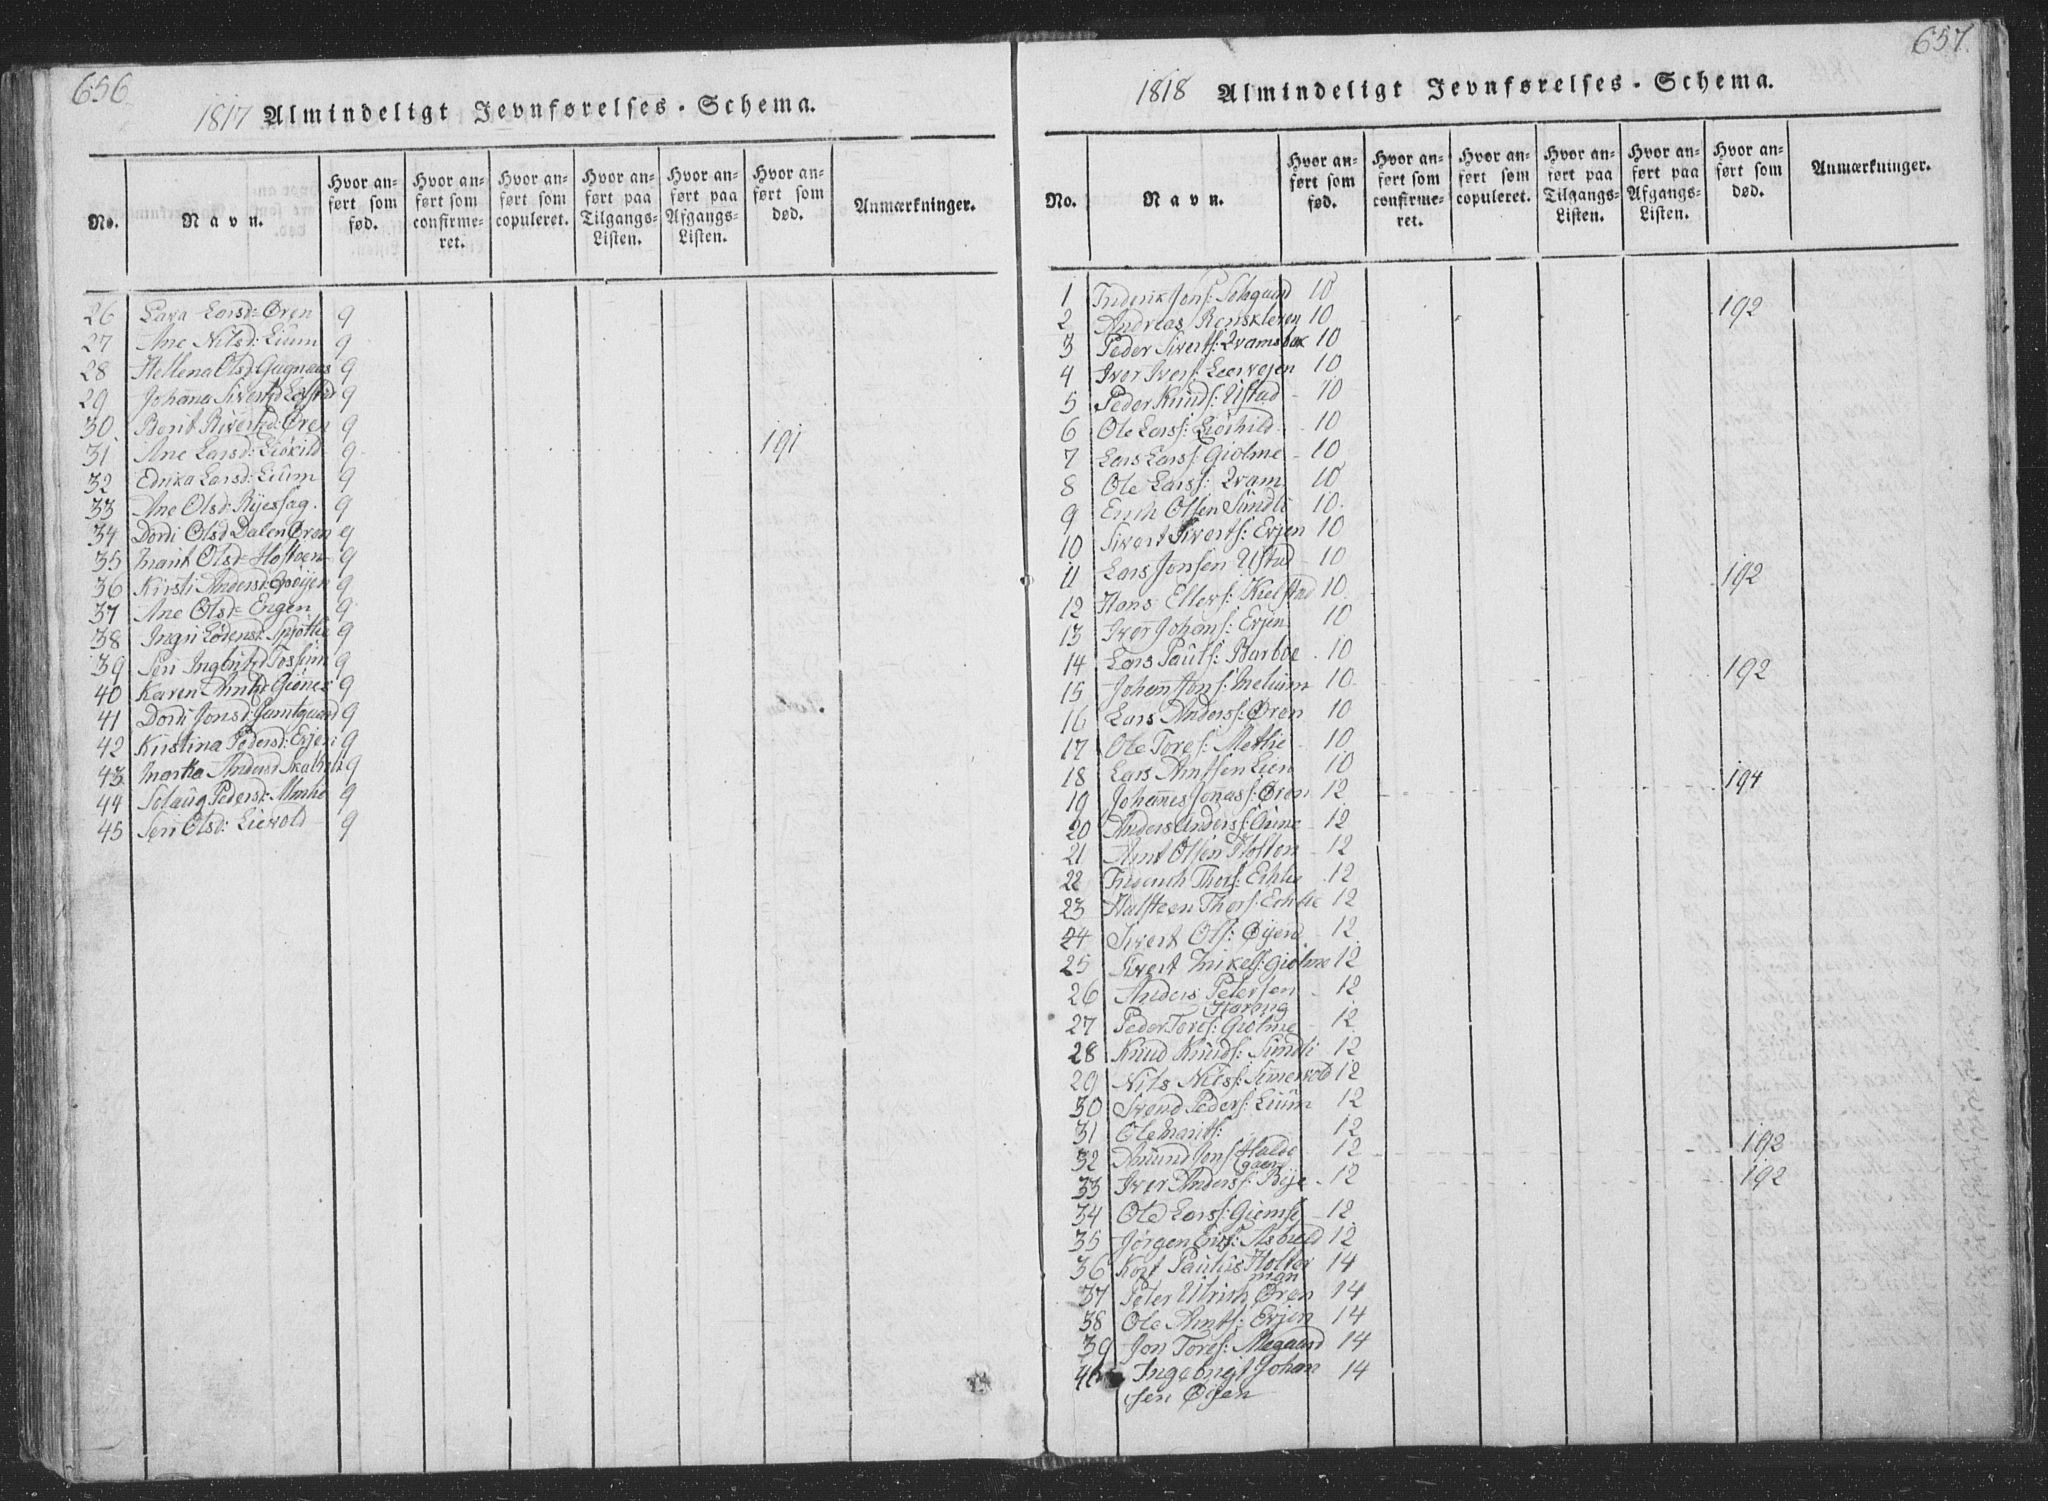 656
1817 Almindeligt Jevnførelses-Schema.
No. Navn. Hvor anført som fød. Hvor anført som confirmeret. Hvor anført som copuleret. Hvor anført paa Tilgangs-Listen. Hvor anført paa Afgangs-Listen. Hvor anført som død. Anmærkninger.
26 Lava Larsd: Øren 9
27 Ane Nilsd: Lium 9
28 Hellena Olsd: Gagnaes 9
29 Johanna Sivertsd 9
30 Berit Sivertsd: Øren 9
31 Ane Larsd: Liökild 9 191
32 Erika Larsd: Lium 9
33 Ane Olsd: Ryessag. 9
34 Dordi Olsd Dalen Øren 9
35 Marit Olsd: Hostoen 9
36 Kirsti Andersd: 9
37 Ane Olsd: Engen 9
38 Ingri 9
39 Seri 9
40 Karen Arntsd: 9
41 Dordi Jonsd: 9
42 Kristina Pedersd: Evjen 9
43 Martha Andersd 9
44 Solaug Pedersd: 9
45 Seri Olsd: Lievold 9
657.
1818 Almindeligt Jevnførelses-Schema.
No. Navn. Hvor anført som fød. Hvor anført som confirmeret. Hvor anført som copuleret. Hvor anført paa Tilgangs-Listen. Hvor anført paa Afgangs-Listen. Hvor anført som død. Anmærkninger.
1 Friderik Jons: Solsgaard 10
2 Andreas Renskleven 10 192
3 Peder Sivertss: Qvamsbak 10
4 Iver Ivers: Leervejen 10
5 Peder Knuds: Ustad 10
6 Ole Larss: Liöshild 10
7 Lars Larss: Giölme 10
8 Ole Larss: Qvam 10
9 Erich Olsen Sundli 10
10 Sivert Sivertss: Evjen 10
11 Lars Jonsen Ustad 10
12 Hans Ellevs: Kielstad 10 192
13 Iver Johans: Evjen 10
14 Lars Pauls: Barboe 10
15 Johan Jons: Melium 10 192
16 Lars Anderss: Øren 10
17 Ole Tores: Methie 10
18 Lars Arntsen Lien 10
19 Johannes Jonass: Øren 12 194
20 Anders Anderss: 12
21 Arnt Olsen Hosten 12
22 Friderich Thors: Echle 12
23 Halsteen Thors: Echle 12
24 Sivert Ols: Øyen 12
25 Sivert Mikels: Giölme 12
26 Anders Petersen 12
Harang
27 Peder Tores: Giölme 12
28 Knud Knuds: Sundli 12
29 Nils Nilss: Simervold 12
30 Svend Peders: Lium 12
31 Ole Marits: 12
32 Amund Jons Halde 12 192
gaen
33 Iver Anderss: Rye 12 192
34 Ole Larss: Giemse 12
35 Jørgen Erics: Asbøld 12
36 Kort Paulus Holter 14
man
37 Peter Ulrich Øren 14
38 Ole Arnts: Evjen 14
39 Jon Tores: Megaard 14
40 Ingebrigt Johan 14
sen Øyen